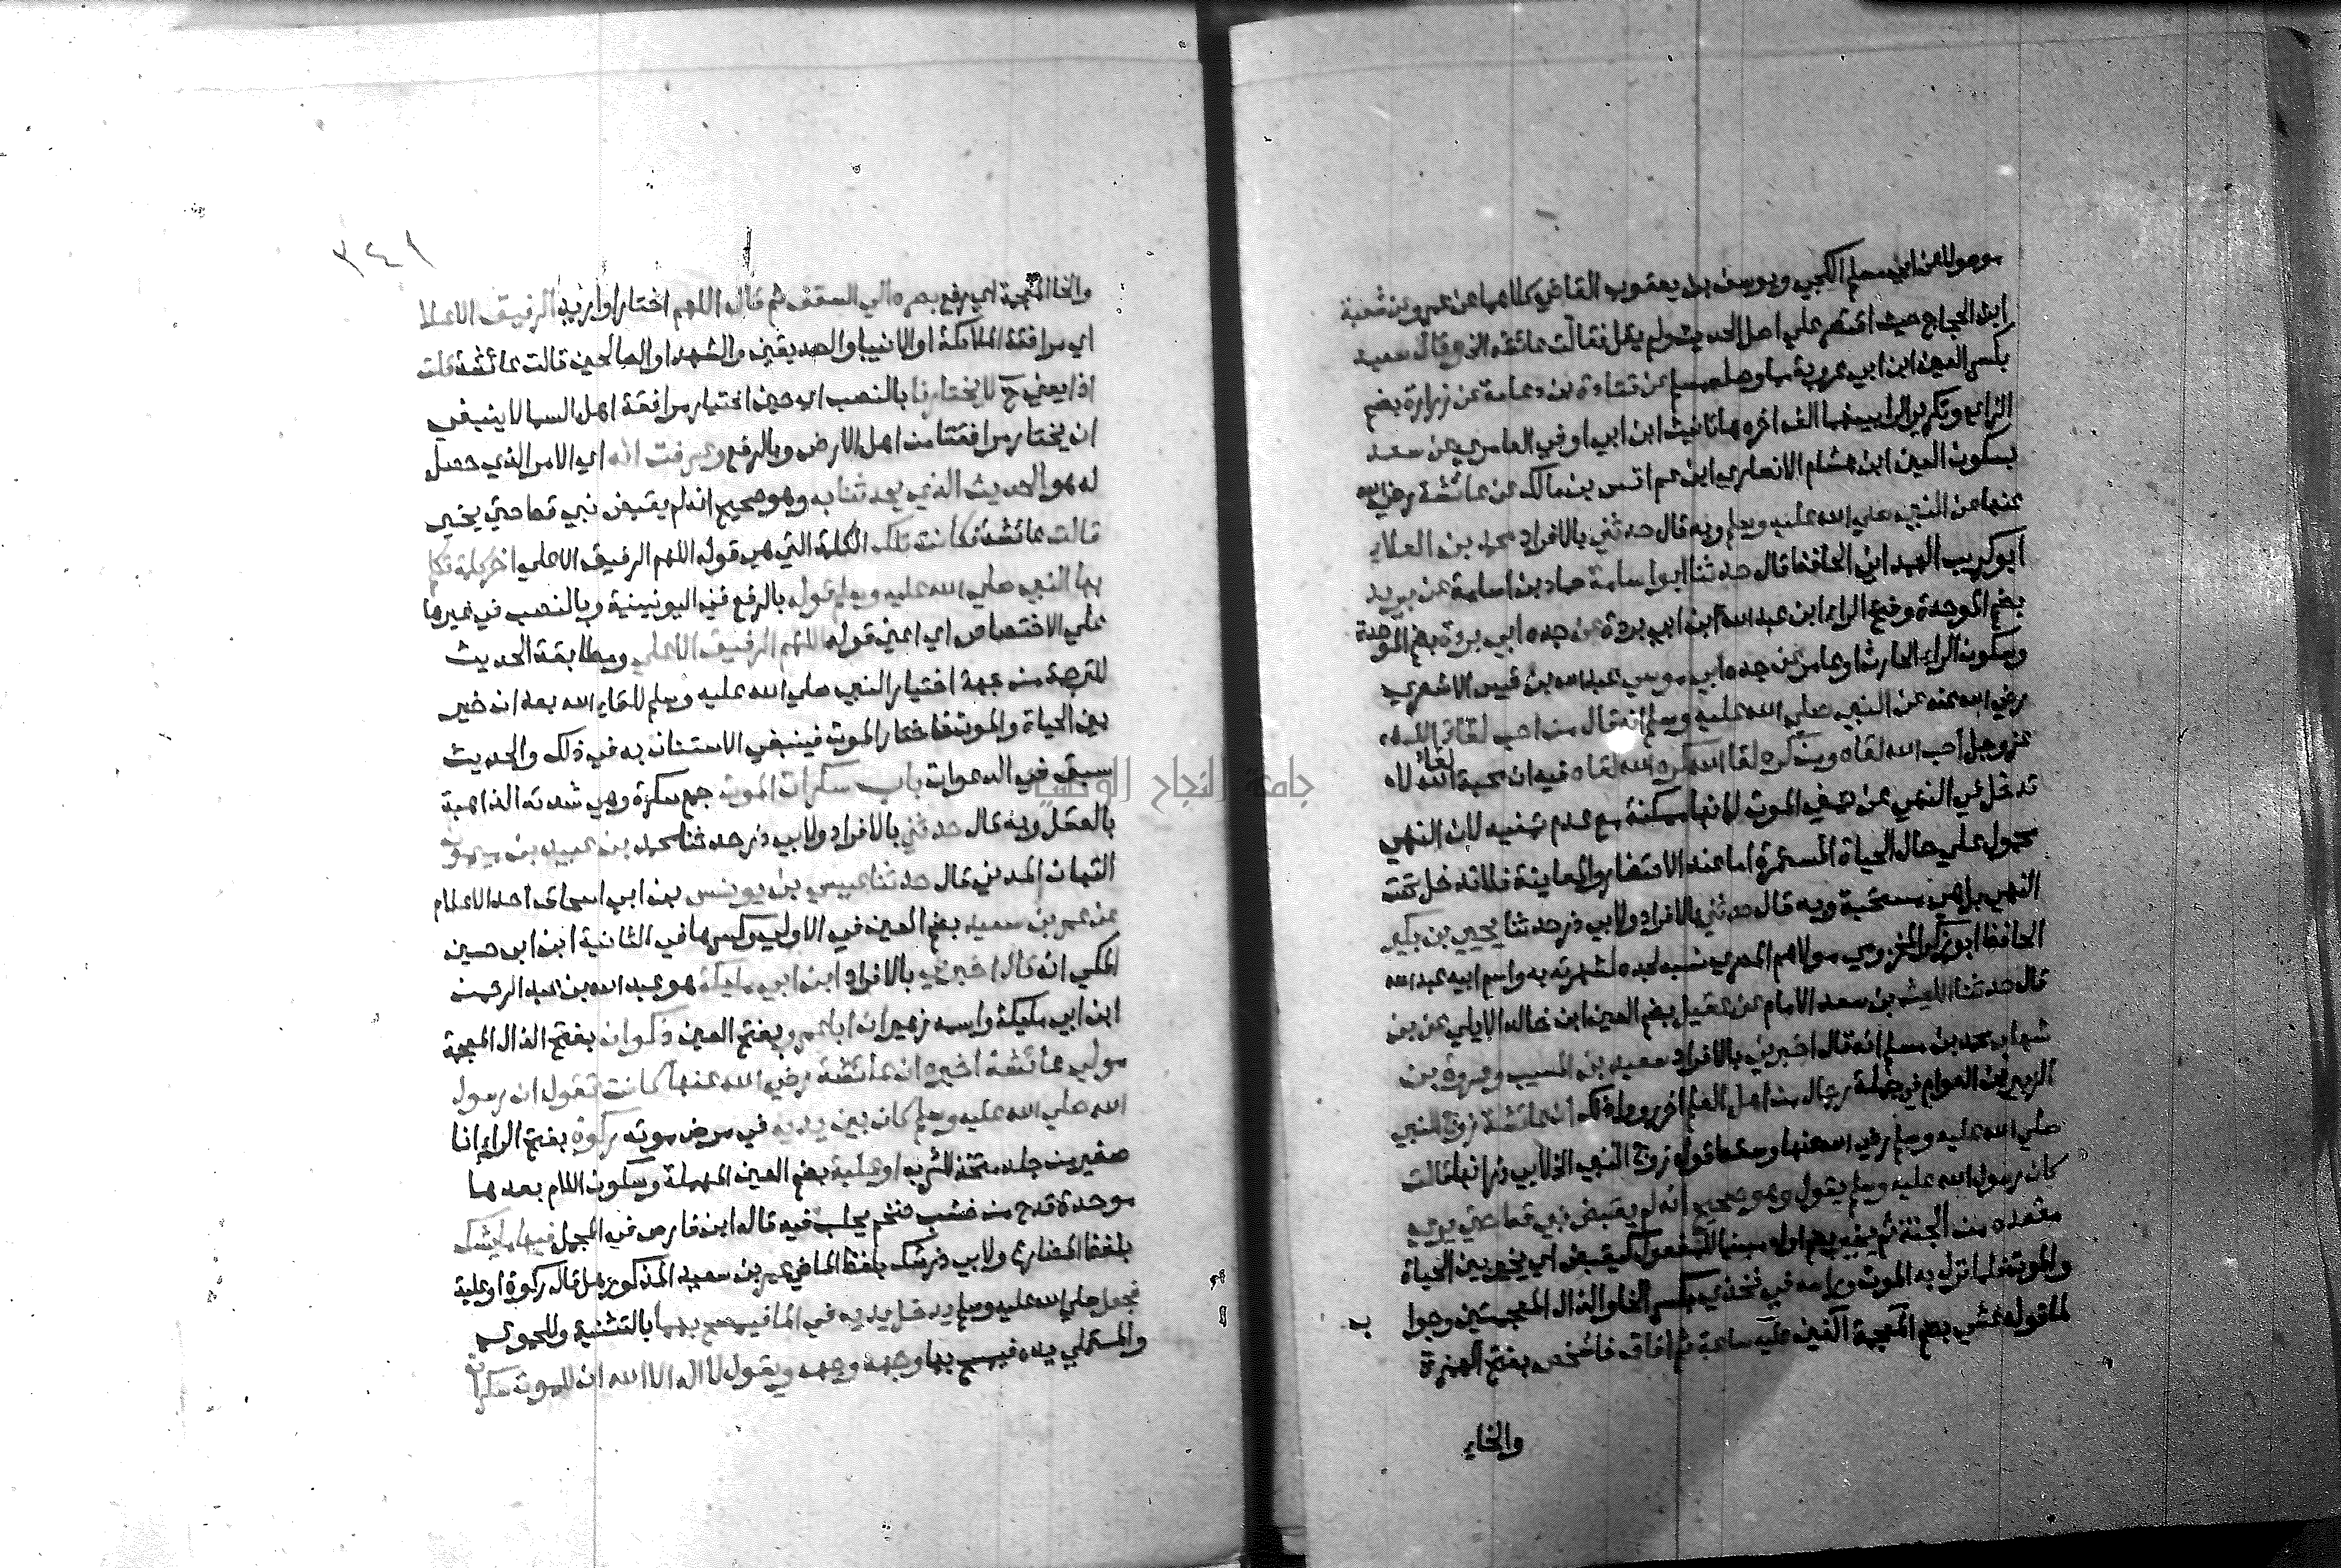 موصولا عن ابي مسلم الكجي ويوسف بن يعقوب القاضي كلاهما عن عمرو عن شعبة
ابن الحجاج حيث اقتصر علي اصل الحديث ولم يقل فقالت عائشة الخ وقال سعيد
بكسر العين ابن ابي عروبة مما وصله مسلم عن قتادة بن دعامة عن زرارة بضم
الزاي وتكرير الراء بينهما الف اخره هاء تانيث ابن ابي اوفي العامري عن سعد
بسكون العين ابن هشام الانصاري ابن عم انس بن مالك عن عائشة رضي الله
عنها عن النبي صلي الله عليه وسلم وبه قال حدثني بالافراد محمد بن العلاء
ابو كريب الهمداني الحافظ قال حدثنا ابو اسامة حماد بن اسامة عن بريد
بضم الموحدة وفتح الراء ابن عبد الله ابن ابي بردة عن جده ابي بردة بضم الموحدة
وسكون الراء الحارث او عامر عن جده ابي موسي عبد الله بن قيس الاشعري
رضي الله عنه عن النبي صلي الله عليه وسلم انه قال من احب لقاء الله
عز وجل احب الله لقاه ومن كره لقا الله كره الله لقاه فيه ان محبة لقاء الله لا
تدخل في النهي عن تمني الموت لانها ممكنة مع عدم تمنيه لان النهي
محمول علي حال الحياة المستمرة اما عند الاحتضار والمعاينة فلا تدخل تحت
النهي بل هي مستحبة وبه قال حدثني بالافراد ولابي ذر حدثنا يحيي بن بكير
الحافظ ابو زكريا المخزومي مولاهم المصري نسبه لجده لشهرته به واسم ابيه عبد الله
قال حدثنا الليث بن سعد الامام عن عقيل بضم العين ابن خالد الايلي عن بن
شهاب محمد بن مسلم انه قال اخبرني بالافراد سعيد بن المسيب وعروة بن
الزبير بن العوام في جملة رجال من اهل العلم اخروا ذلك ان عائشة زوج النبي
صلي الله عليه وسلم رضي الله عنها وسقط قوله زوج النبي الخ لابي ذر انها قالت
كان رسول الله عليه وسلم يقول وهو صحيح انه لم يقبض نبي قط حتي يري
مقعده من الجنة ثم يخير بضم اوله مبنيا للمفعول كيقبض اي يخير بين الحياة
والموت فلما نزل به الموت وراسه في فخذي بكسر الخا والذال المعجمتين وجوا ب
لما قوله غشي بضم المعجمة الغين عليه ساعة ثم افاق فاشخص بفتح الهمزة
والخاء
٣٤١
والخا المعجمة اي رفع بصره الي السقف ثم قال اللهم اختار او اريد الرفيق الاعلا
اي مرافقة الملائكة او الانبيا والصديقين والشهدا والصالحين قالت عائشة قلت
اذا يعني ح لا يختارنا بالنصب اي حين اختيار مرافقة اهل السما لا ينبغي
ان يختار مرافقتنا من اهل الارض وبالرفع وعرفت انه اي الامر الذي حصل
له هو الحديث الذي يحدثنا به وهو صحيح انه لم يقبض نبي قط حتي يخير
قالت عائشة فكانت تلك الكلمة التي هي قوله اللهم الرفيق الاعلي اخر كلمة تكلم
بها النبي صلي الله عليه وسلم قوله بالرفع في اليونينية وبالنصب في غيرها
علي الاختصاص اي اعني قوله اللهم الرفيق الاعلي ومطابقة الحديث
للترجمة من جهة اختيار النبي صلي الله عليه وسلم للقاء الله بعد ان خير
بين الحياة والموت فاختار الموت فينبغي الاستنان به في ذلك والحديث
سبق في الدعوات باب سكرات الموت جمع سكرة وهي شدته الذاهبة
بالعقل وبه قال حدثني بالافراد ولابي ذر حدثنا محمد بن عبيد بن ميمون
التبان المدني قال حدثنا عيسي بن يونس بن ابي اسحاق احد الاعلام
عن عمر بن سعيد بضم العين في الاولي وكسرها في الثانية ابن ابي حسين
المكي انه قال اخبرني بالافراد ابن ابي مليكة هو عبد الله بن عبد الرحمن
ابن ابي مليكة واسمه زهير ان ابا عمرو بفتح العين ذكوان بفتح الذال المعجمة
مولي عائشة اخبره ان عائشة رضي الله عنها كانت تقول ان رسول
الله صلي الله عليه وسلم كان بين يديه في مرض موته ركوة بفتح الراء انا
صغير من جلد متخذ للشرب او علبة بضم العين المهملة وسكون اللام بعدها
موحدة قدح من خشب ضخم يحلب فيه قاله ابن فارس في المجمل فيها ما يشك
بلفظ المضارع ولابي ذر شك بلفظ الماضي عمر بن سعيد المذكور هل قال ركوة او علبة
فجعل صلي الله عليه وسلم يدخل يديه في الما فيمسح بهما بالتثنية وللحموي
والمستملي يده فيمسح بها وجهه وجهه ويقول لا اله الا الله ان للموت سكرات
جامعة النجاح الوطنية